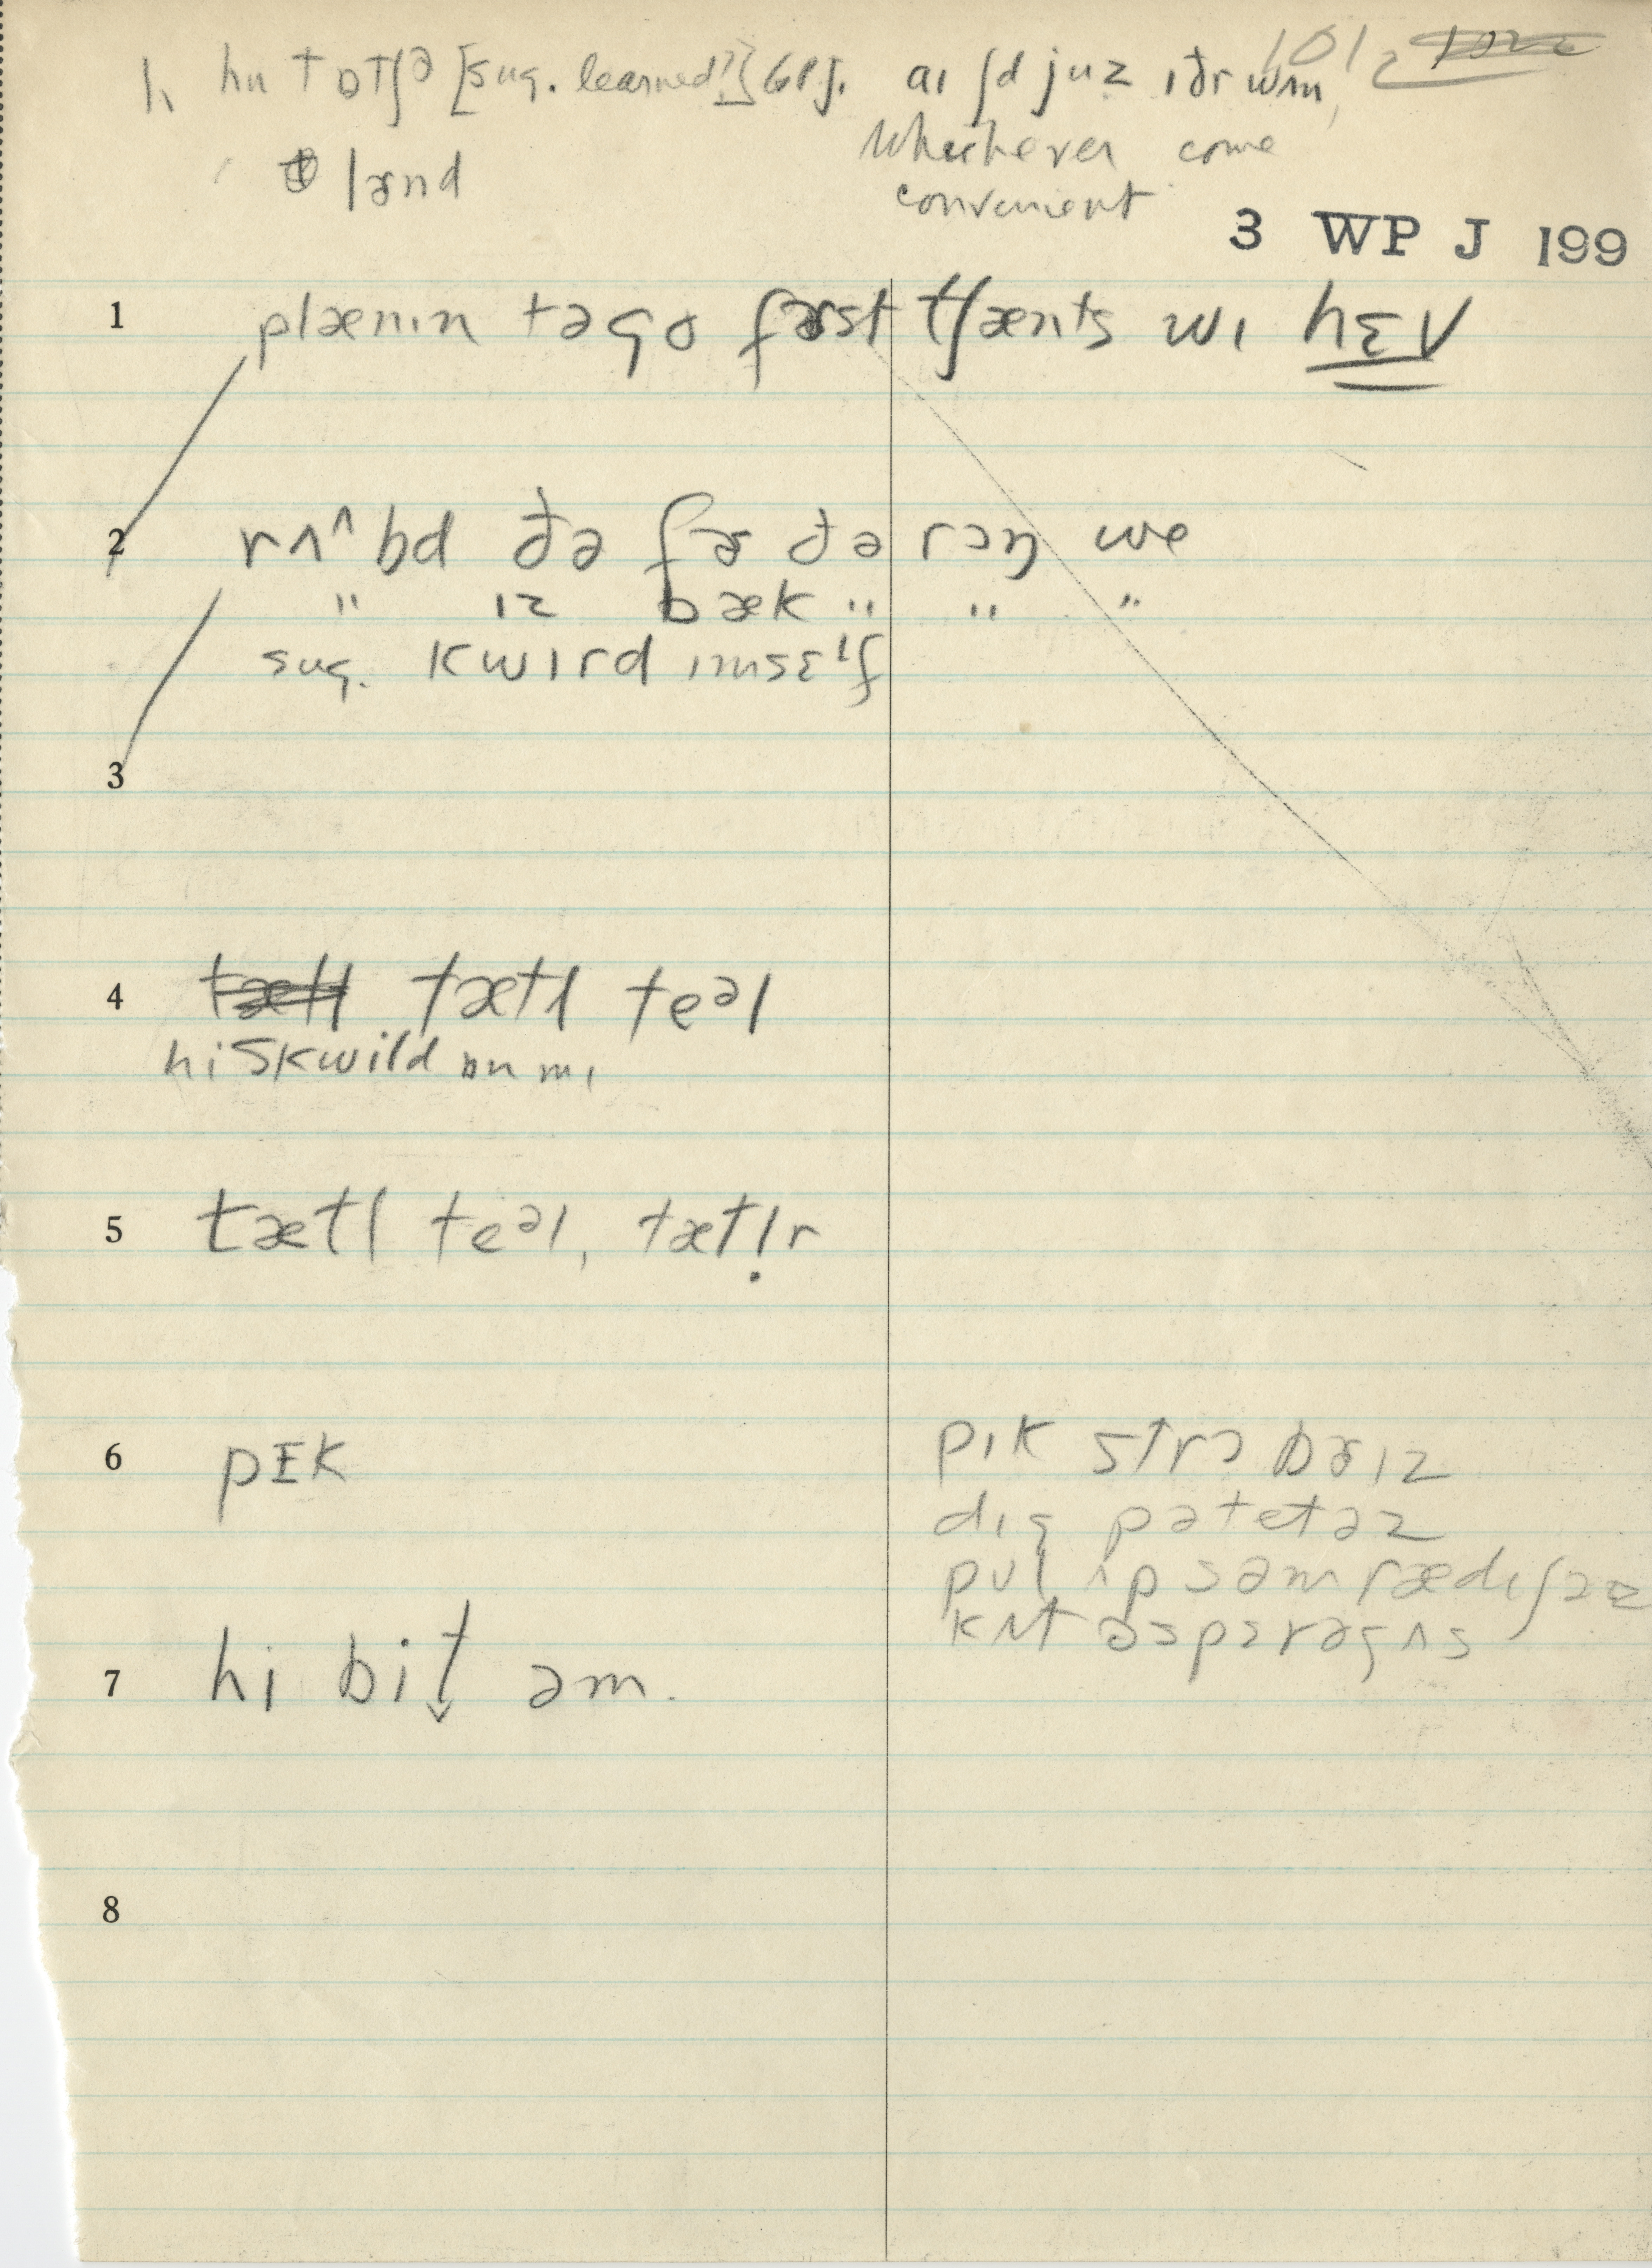 hu tɒtʃə [sug. learned?] {61}. aɪ ʃd juz ɪðr wʌn 1012
lɚnd Whichever come
convenient
3 WP J 199
1 plænɪn təgo fɚst tʃænts wɪ hɛv
2 rʌ^bd ðə fɚ ðə rɔŋ we
" ɪz bæk " " "
sug. kwɪrd ɪmsɛlf
3
4 tætl teəl
hi skwild ɒn mɪ
5 tætl teəl, tætl̩r
6 pɪk pɪk strɔ bɚɪz
dɪg pətetəz
pʊl ʌp səm rædɪʃəz
kʌt əspærəgʌs
7 hi bit̬ əm.
8